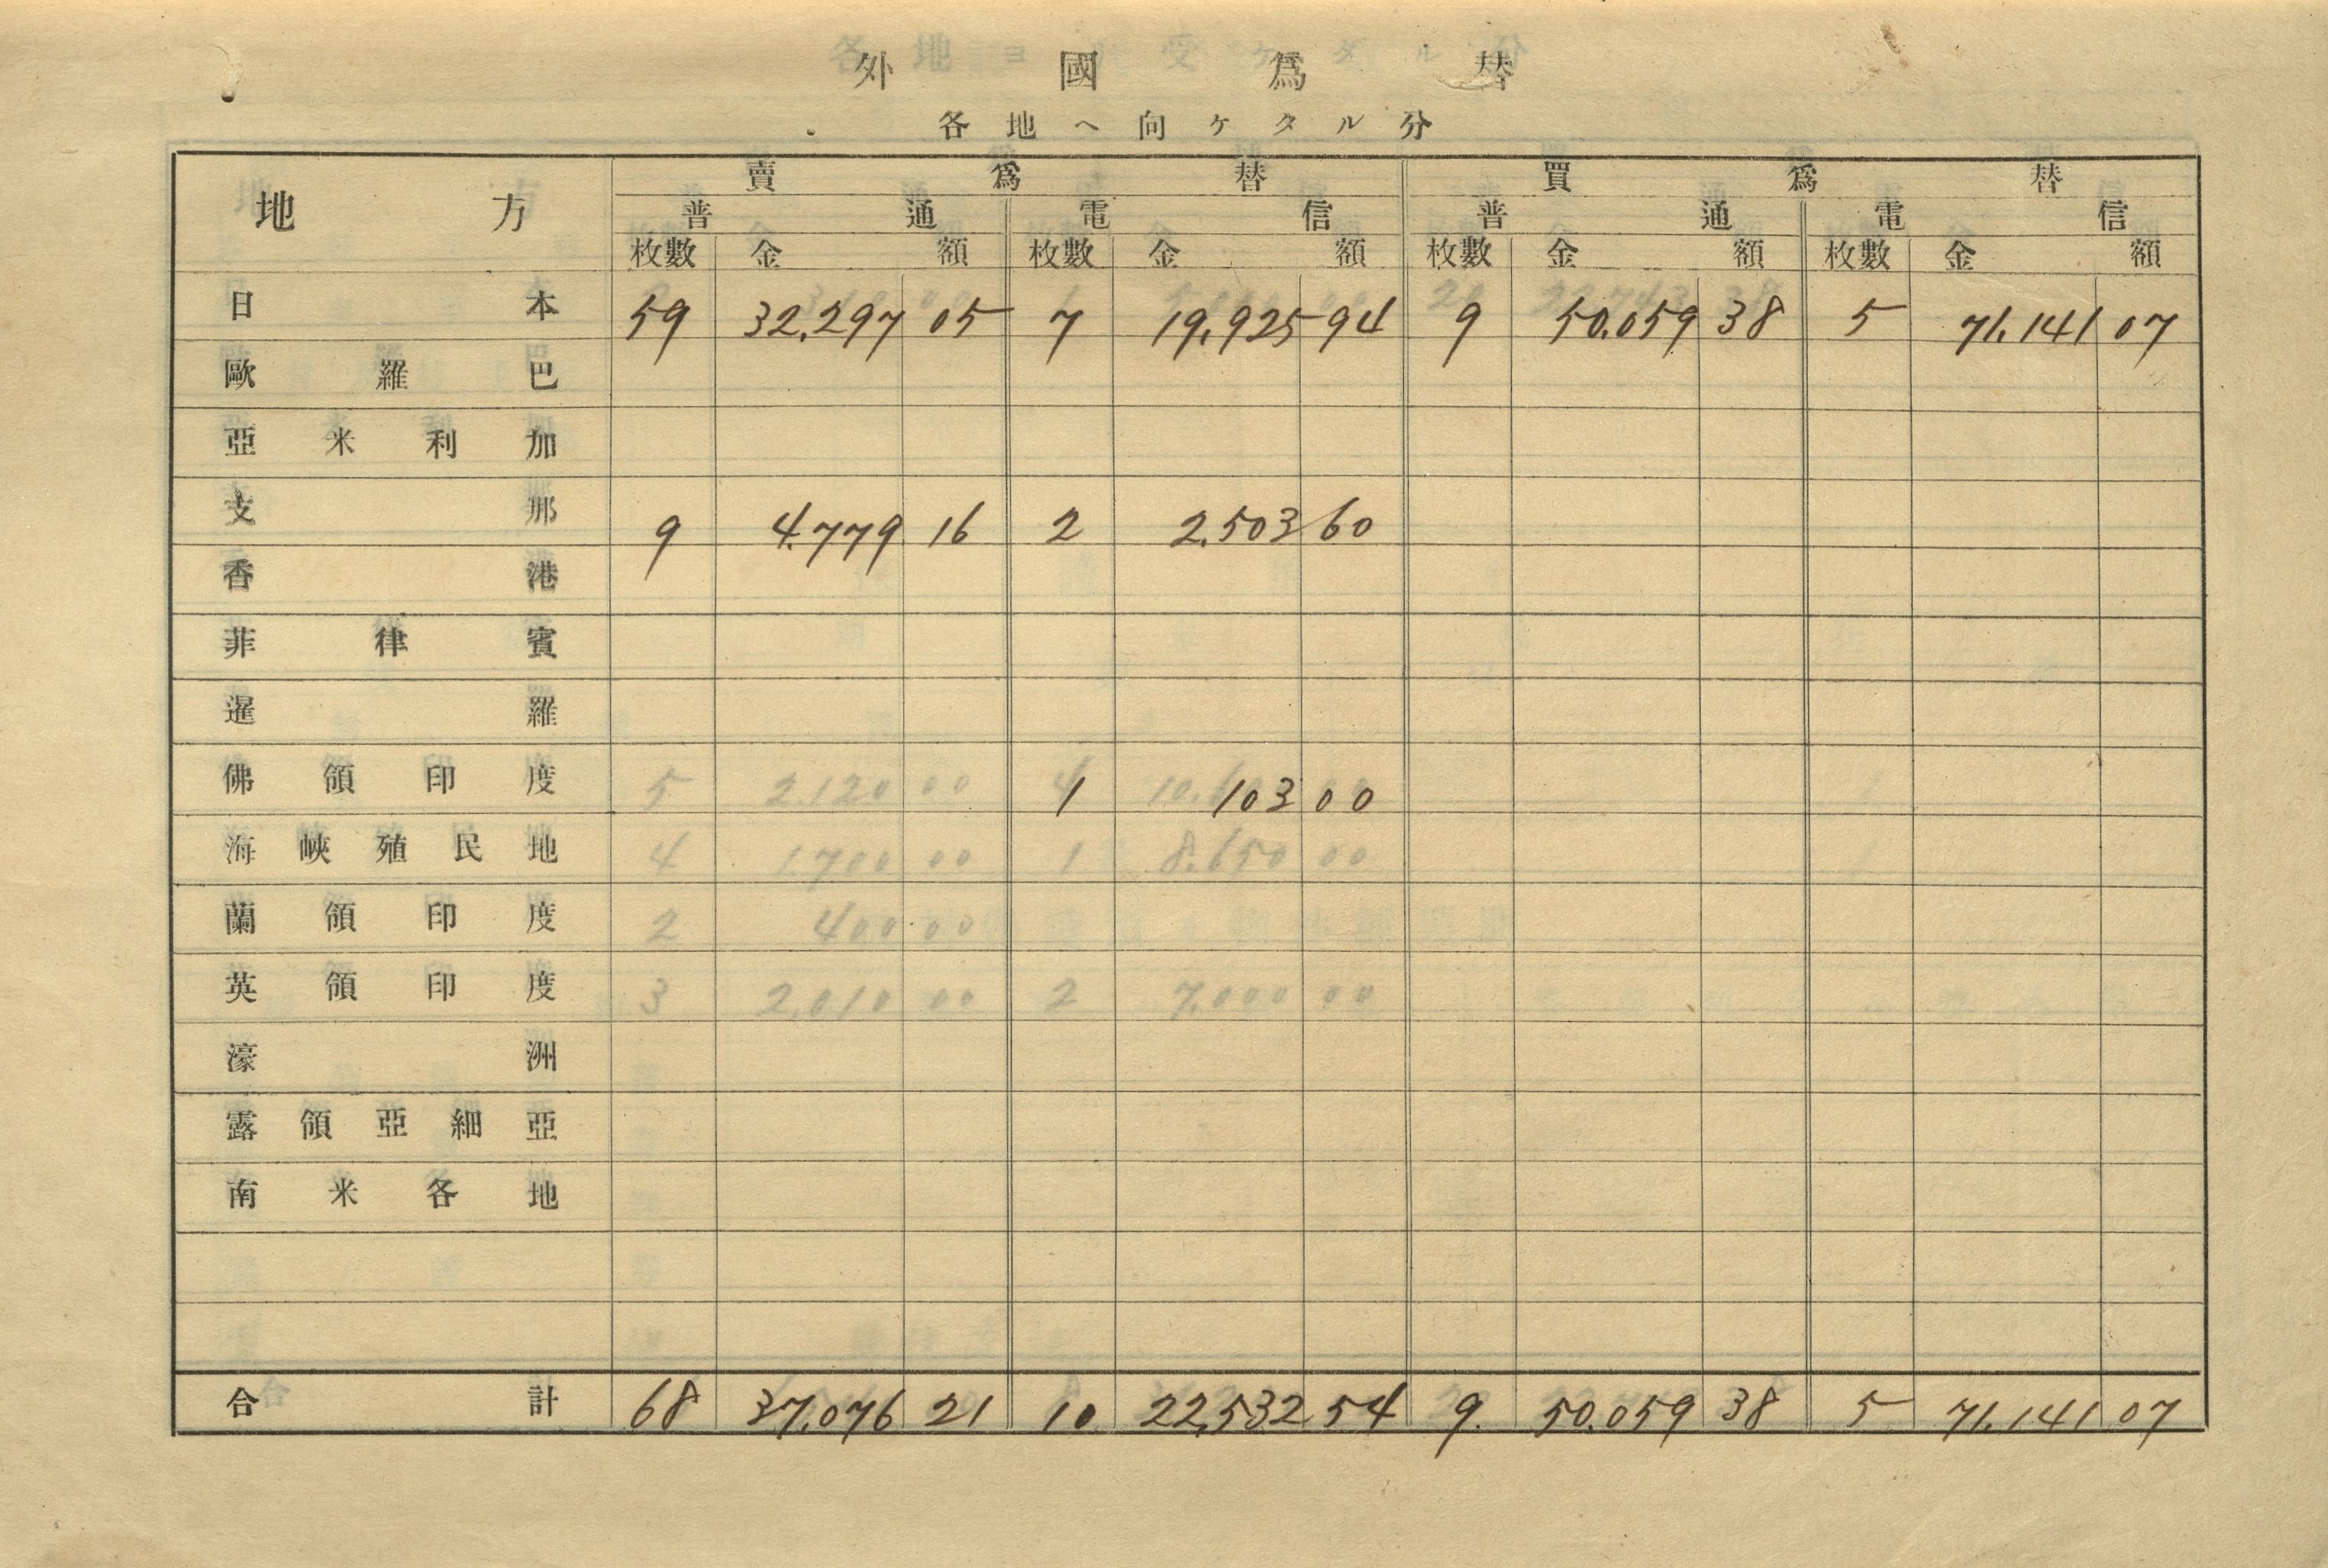 外國爲替
各地ヘ向ケタル分
地方 賣爲替 買爲替
普通 電信 普通 電信
枚數 金額 枚數 金額 枚數 金額 枚數 金額
日本 59 32,297 05 7 19,925 94 9 50,059 38 5 71,141 07
歐羅巴
亞米利加
支那 9 4,779 16 2 2,503 60
香港
菲律賓
暹羅
佛領印度 1 103 00
海峽殖民地
蘭領印度
英領印度
濠洲
露領亞細亞
南米各地
合計 68 37,076 21 10 22,532 54 9 50,059 38 5 71,141 07